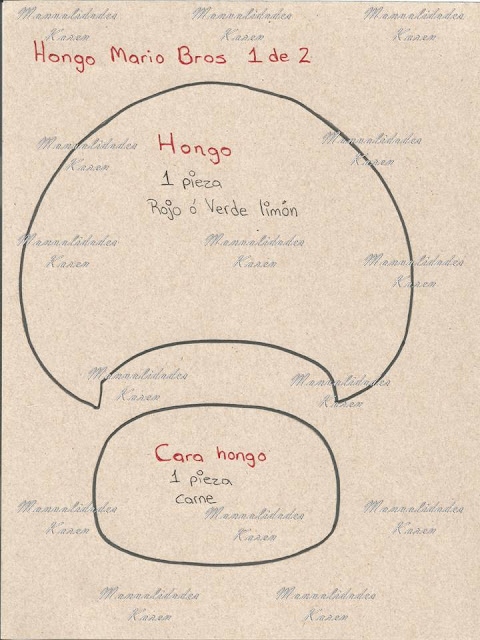 Manualidades Karen
Manualidades Karen
Manualidades Karen
Hongo Mario Bros 1 de 2
Manualidades Karen
Manualidades Karen
Hongo
1 pieza
Rojo ó Verde limón
Manualidades Karen
Manualidades Karen
Manualidades Karen
Manualidades Karen
Manualidades Karen
Cara hongo
1 pieza
carne
Manualidades Karen
Manualidades Karen
Manualidades Karen
Manualidades Karen
Manualidades Karen